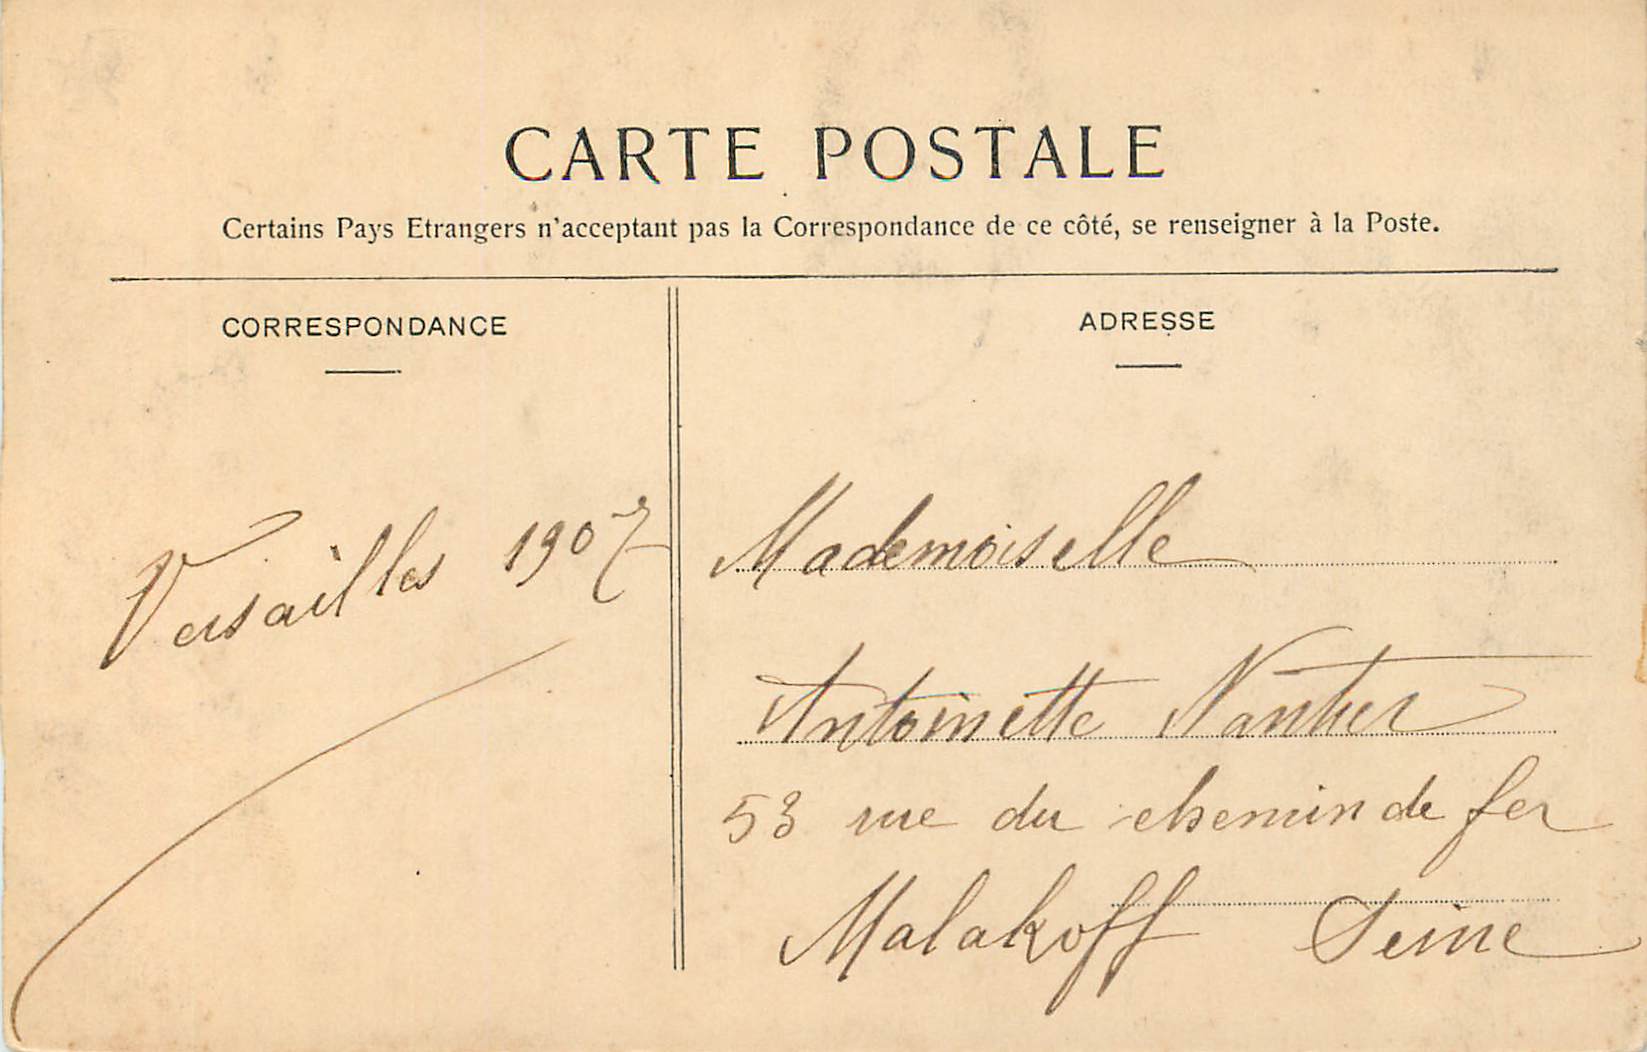 CARTE POSTALE
Certains Pays Etrangers n'acceptant pas la Correspondance de ce côté, se renseigner à la Poste.
CORRESPONDANCE
Versailles 1907
ADRESSE
Mademoiselle
Antoinette
53 rue du chemin de fer
Malakoff Seine